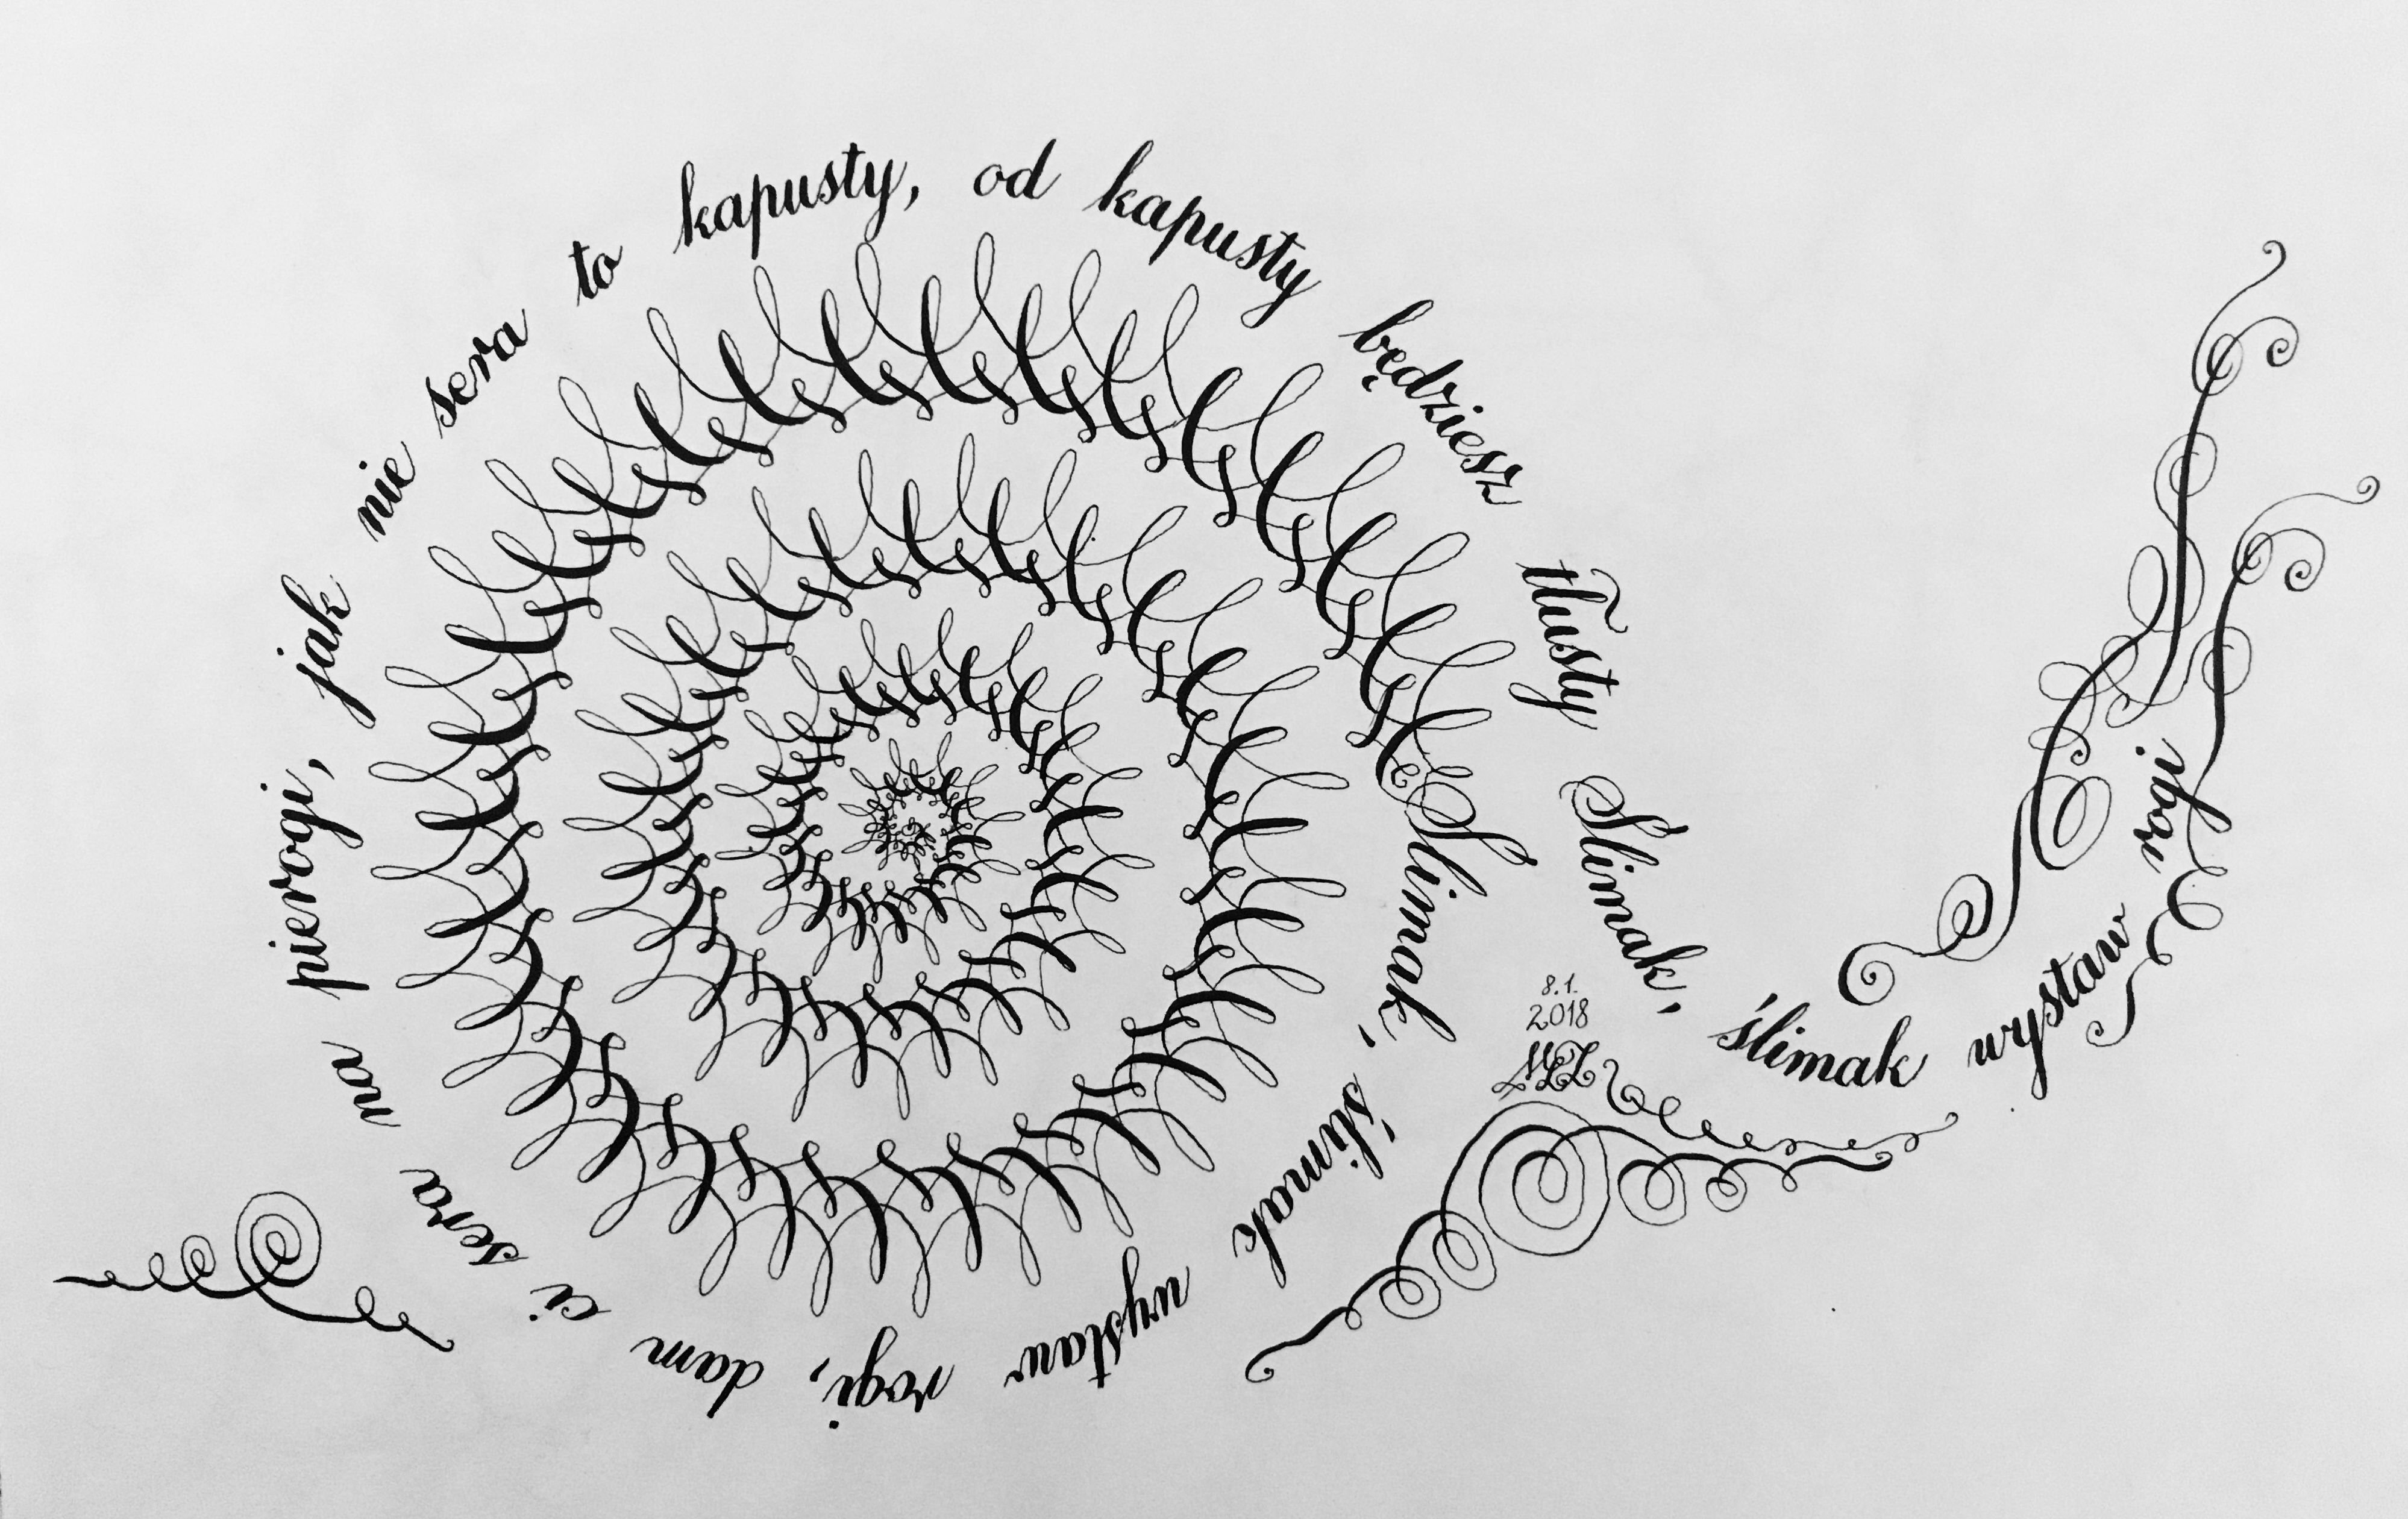 Ślimak, ślimak wystaw rogi, dam ci sera na pierogi, jak nie sera to kapusty, od kapusty będziesz tłusty Ślimak, ślimak wystaw rogi!
8.1.
2018